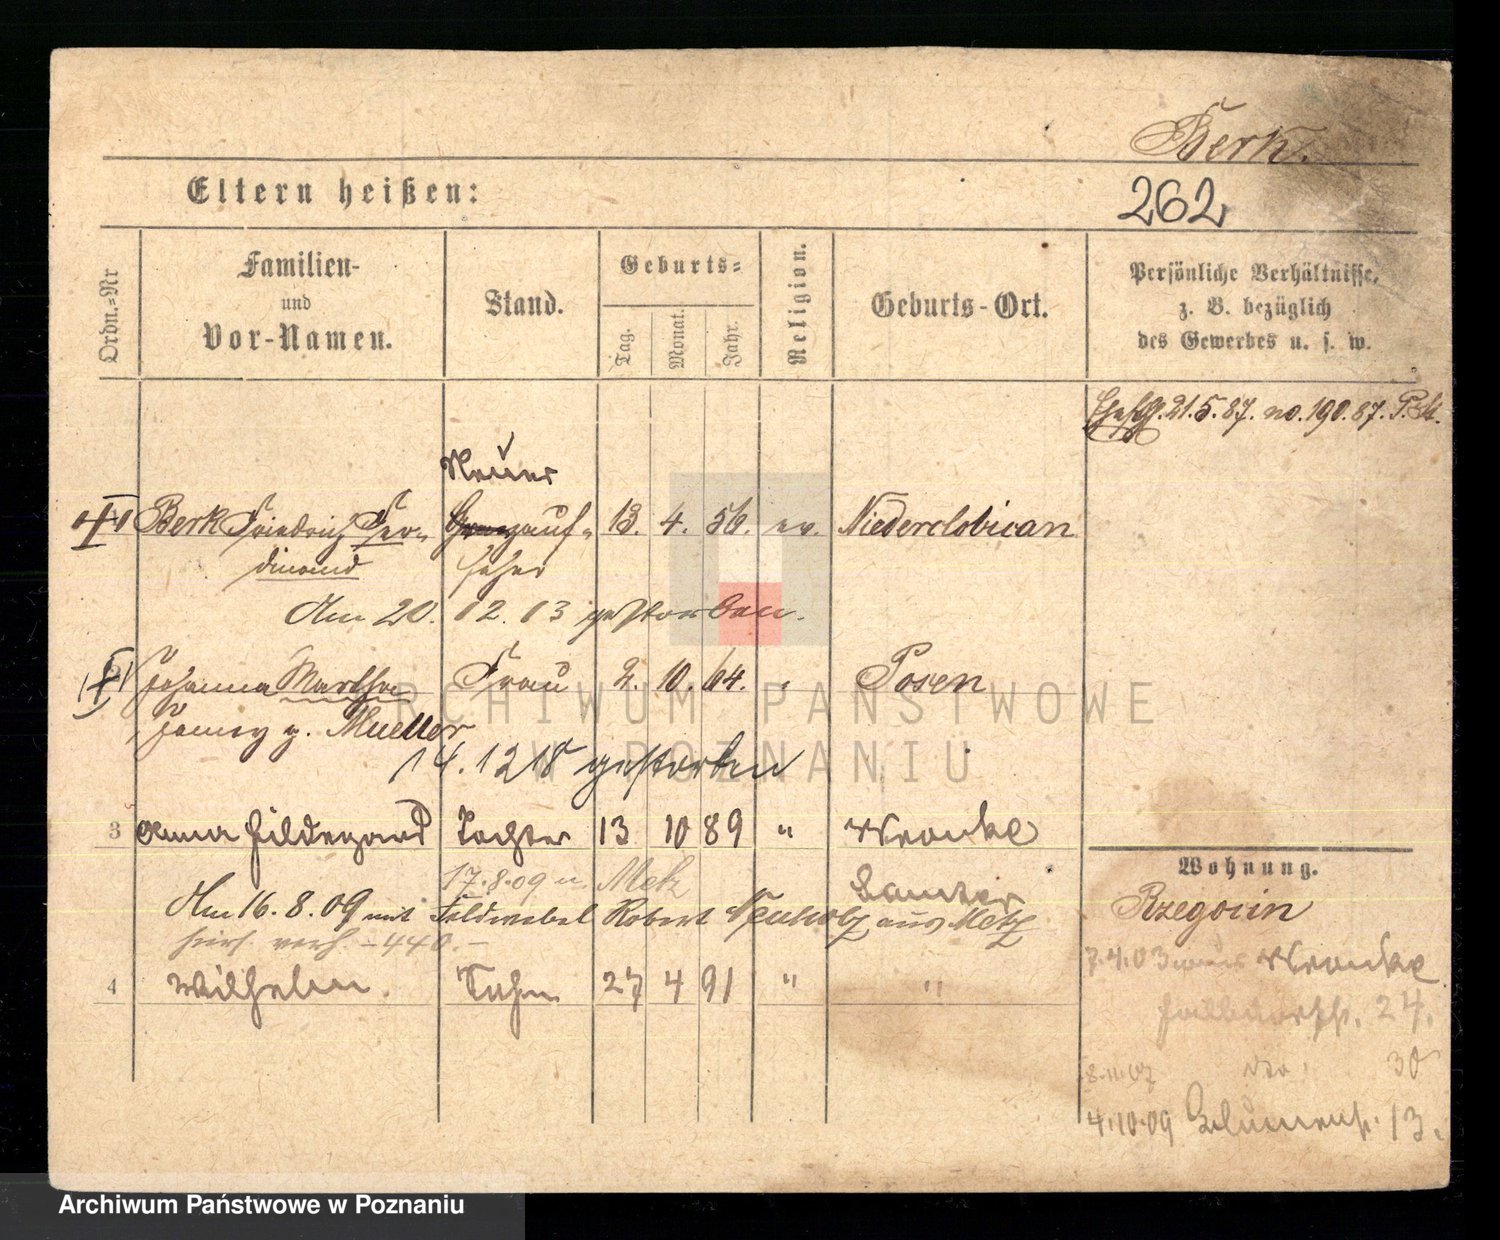 Berk.
Eltern heißen:
262
Ordn.=Nr
Familien-
und
Vor-Namen.
Stand.
Geburts=
Tag.
Monat.
Jahr.
Religion.
Geburts-Ort.
Persönliche Verhältnisse,
z. B. bezüglich
des Gewerbes u. s. w.
21.5.87. no. 190.87. P. St.
Steuer
1 Berk Friedrich Fer- auf- 13. 4. 56. ev. Niederclobican
dinand seher
Am 20. 12. 13 gestorben.
2 Johanna Martha Frau 2. 10. 64. " Posen
Fanny g. Mueller
14. 12 18 gestorben
3 Anna Hildegard Tochter 13 10 89 " Wronke
17.8.09 n. Metz Samter
Am 16. 8. 09 mit Feldwebel Robert aus Metz
hier verh. -440.-
4 Wilhelm Sohn 27 4 91 " "
Wohnung.
Rzegocin
7.4.03 aus Wronke
24.
8.11.07 30
4.10.09 Blumenst. 13.
ARCHIWUM PAŃSTWOWE
W POZNANIU
Archiwum Państwowe w Poznaniu